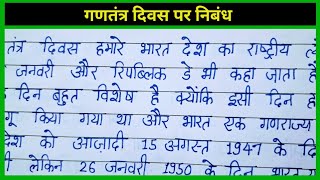 गणतंत्र दिवस पर निबंध
तंत्र दिवस हमारे भारत देश का राष्ट्रीय
जनवरी और रिपब्लिक डे भी कहा जाता है
दिन बहुत विशेष है क्योंकि इसी दिन
किया गया था और भारत एक गणराज्य
को आज़ादी 15 अगस्त 1947 के
लेकिन 26 जनवरी 1950 के दिन भारत